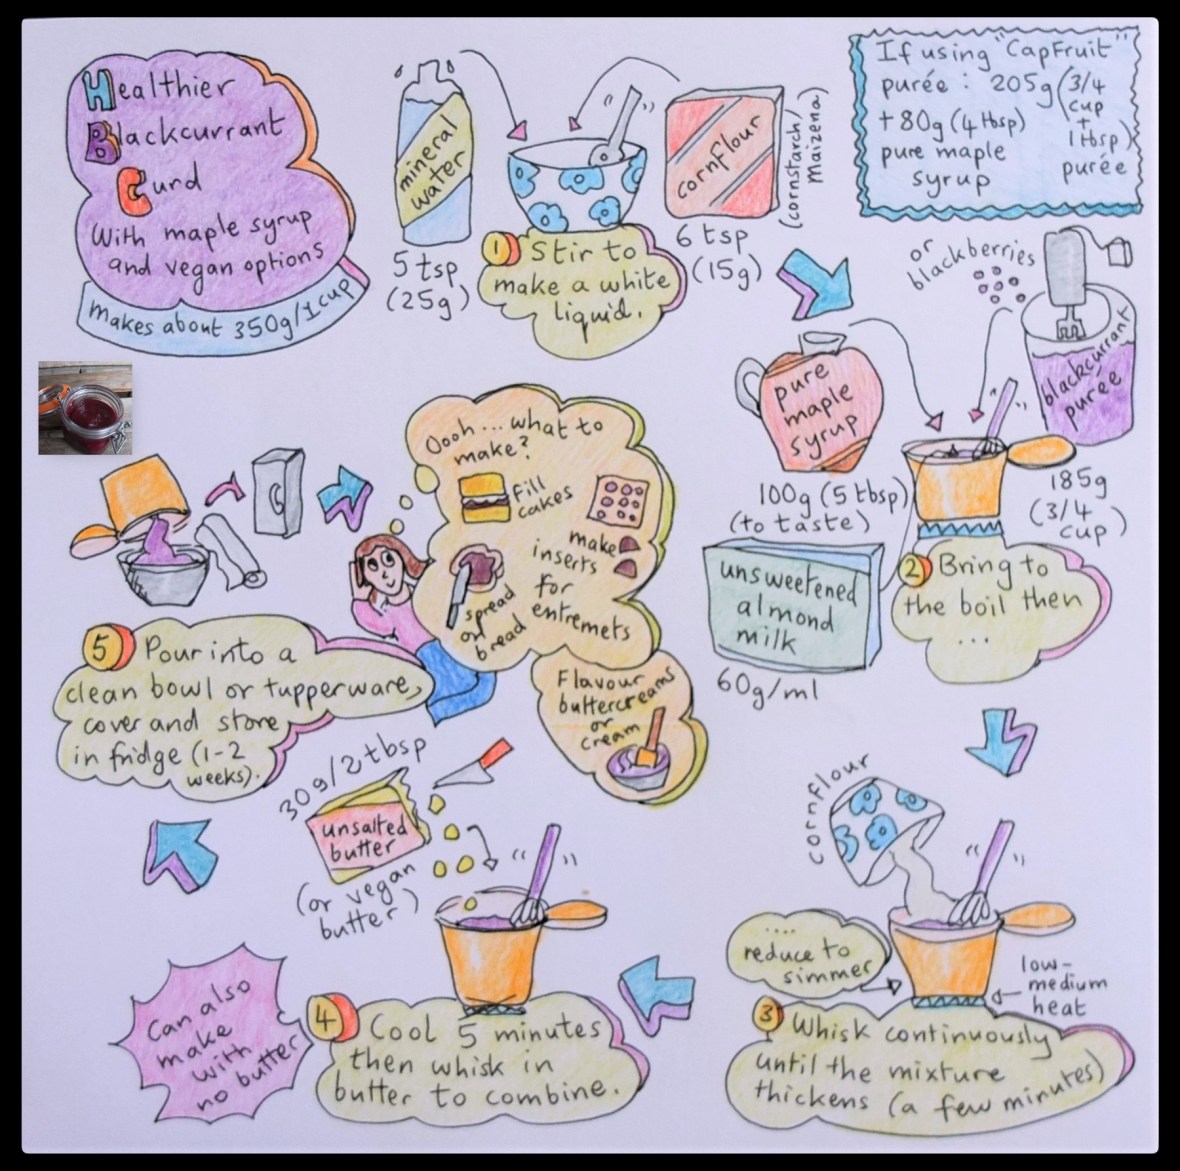 Healthier
Blackcurrant
Curd
With maple syrup
and vegan options
makes about 350g/1cup
mineral
water
5 tsp
(25g)
cornflour
(cornstarch/
maizena)
6 tsp
(15g)
1 Stir to
make a white
liquid.
If using "CapFruit"
purée : 205g (3/4
cup
+
1tbsp)
purée
+ 80g (4 tbsp)
pure maple
syrup
or
blackberries
blackcurrant
purée
185g
(3/4
cup)
pure
maple
syrup
100g (5 tbsp)
(to taste)
unsweetened
almond
milk
60g/ml
2 Bring to
the boil then
...
cornflour
....
reduce to
simmer
low-
medium
heat
3 Whisk continuously
until the mixture
thickens (a few minutes)
30g/2tbsp
unsalted
butter
(or vegan
butter)
4 Cool 5 minutes
then whisk in
butter to combine.
Can also
make
with
no butter
5 Pour into a
clean bowl or tupperware,
cover and store
in fridge (1-2
weeks).
Oooh ... what to
make?
Fill
cakes
make
inserts
for
entremets
spread
on
bread
Flavour
buttercreams
or
cream